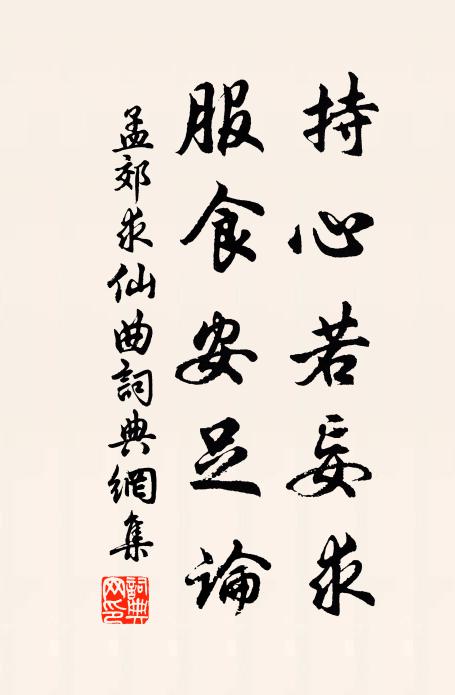 持心若妄求
服食安足論
孟郊求仙曲詞典網集
詞典
网印